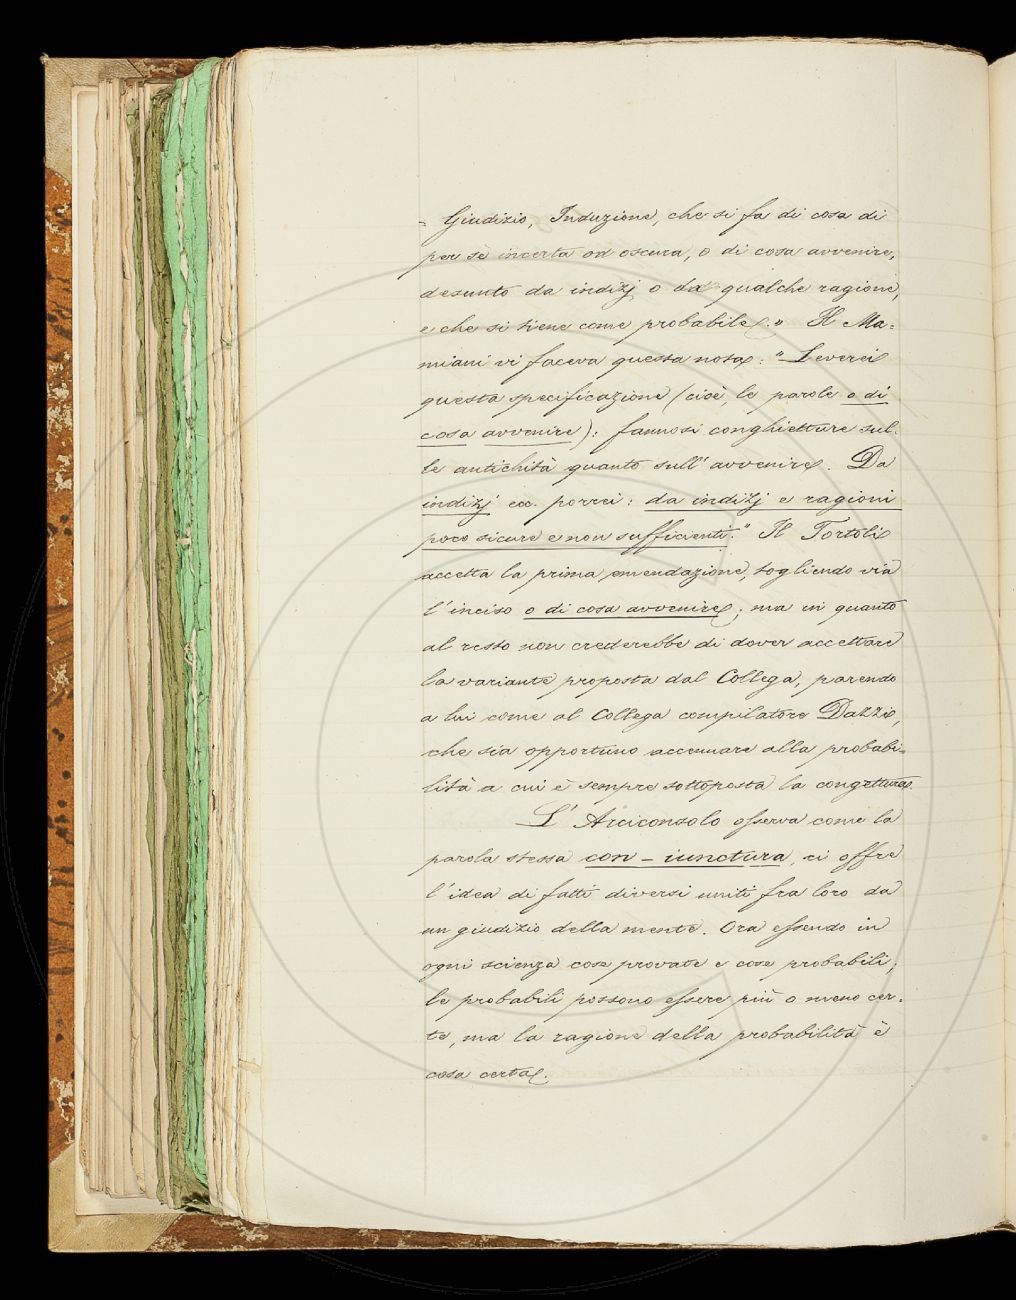 = Giudizio, Induzione, che si fa di cosa di
per sè incerta od oscura, o di cosa avvenire,
desunto da indizj o da qualche ragione,
e che si tiene come probabile." Il Ma=
miani vi faceva questa nota: "Leverei
questa specificazione (cioè, le parole o di
cosa avvenire): fannosi conghietture sul-
le antichità quanto sull'avvenire. Da
indizj ecc. porrei: da indizj e ragioni
poco sicure e non sufficienti." Il Tortoli
accetta la prima emendazione, togliendo via
l'inciso o di cosa avvenire; ma in quanto
al resto non crederebbe di dover accettare
la variante proposta dal Collega, parendo
a lui come al Collega compilatore Dazzi,
che sia opportuno accennare alla probabi=
lità a cui è sempre sottoposta la congettura.
L'Arciconsolo osserva come la
parola stessa con-iunctura, ci offre
l'idea di fatti diversi uniti fra loro da
un giudizio della mente. Ora essendo in
ogni scienza cose provate e cose probabili;
le probabili possono essere più o meno cer-
te, ma la ragione della probabilità è
cosa certa.